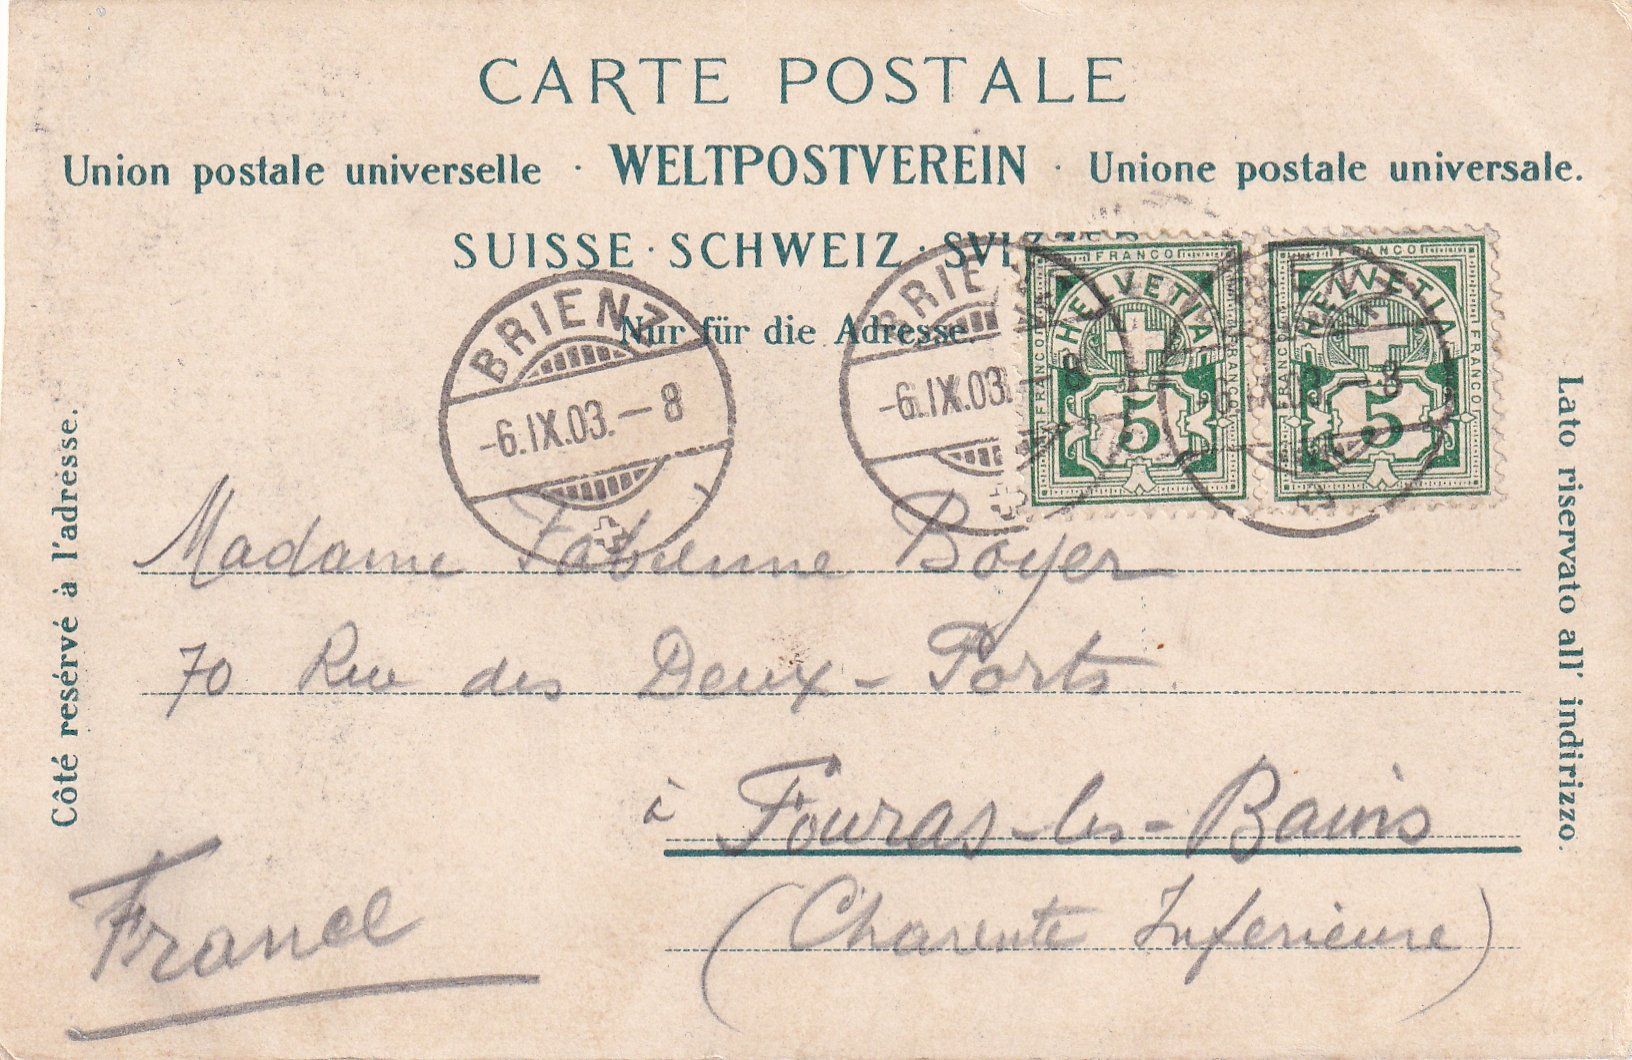 CARTE POSTALE
Union postale universelle · WELTPOSTVEREIN · Unione postale universale.
SUISSE · SCHWEIZ · SVIZZER
Nur für die Adresse.
BRIENZ
-6.IX.03.-8
BRIENZ
-6.IX.03.-8
FRANCO
HELVETIA
FRANCO
FRANCO
5
FRANCO
HELVETIA
FRANCO
FRANCO
5
Côté reservé à l'adresse.
Lato riservato all' indirizzo.
Madame Fabienne Boyer
70 Rue des Deux-Ports
à Fouras-les-Bains
(Charente Inferieure)
France